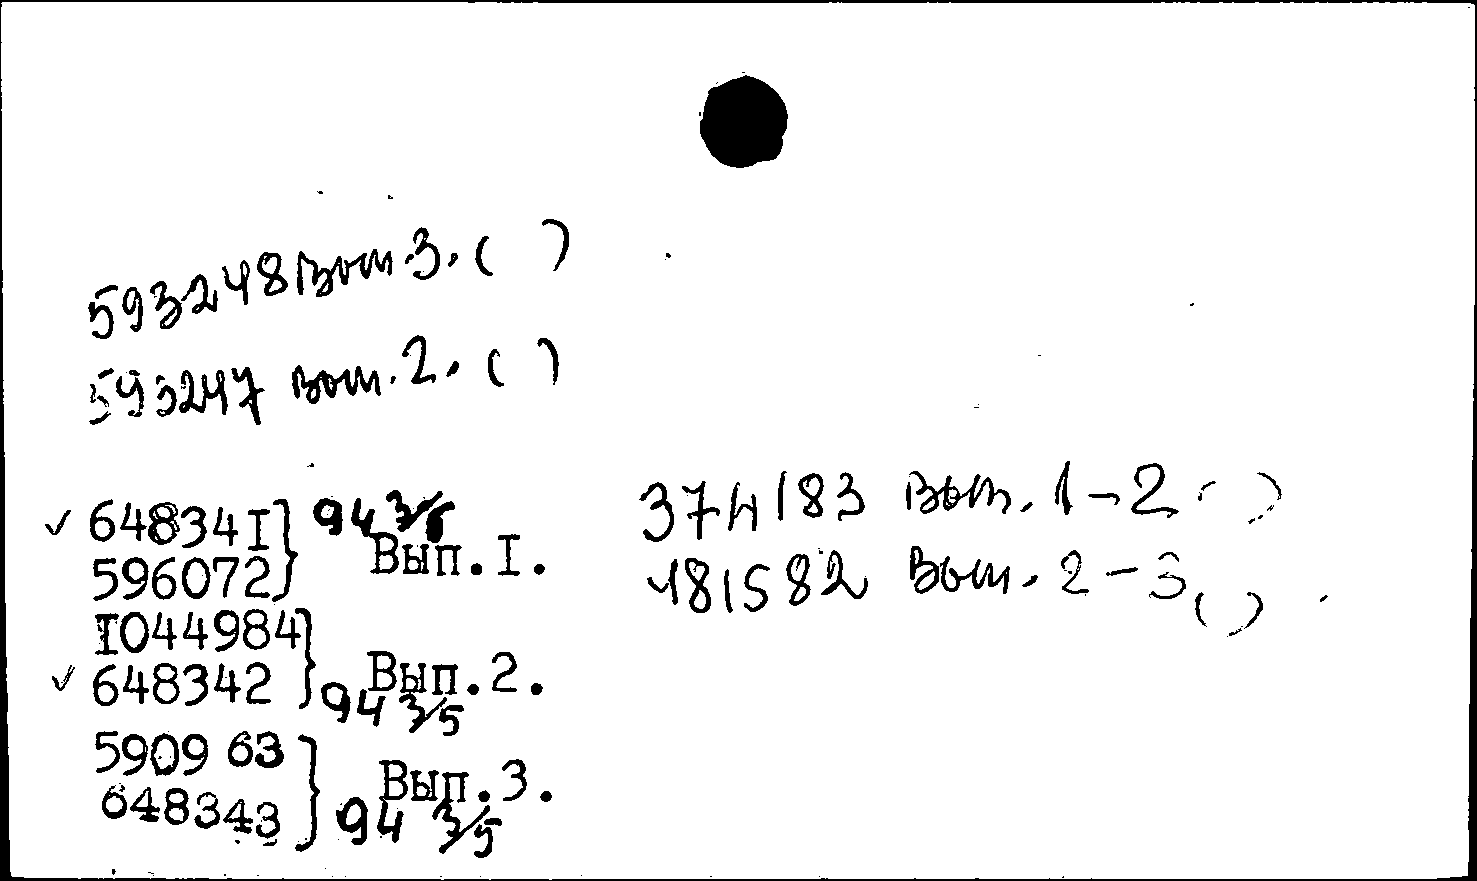 593248 Вып. 3. ( )
593247 вып. 2. ( )
✓ 648341 } 94 3/5
596072 } Вып.I.
I044984 }
✓ 648342 } Вып.2.
94 3/5
5909 63 } Вып.3.
648343 } 94 3/5
374183 вып. 1-2 ( )
481582 вып. 2-3 ( )